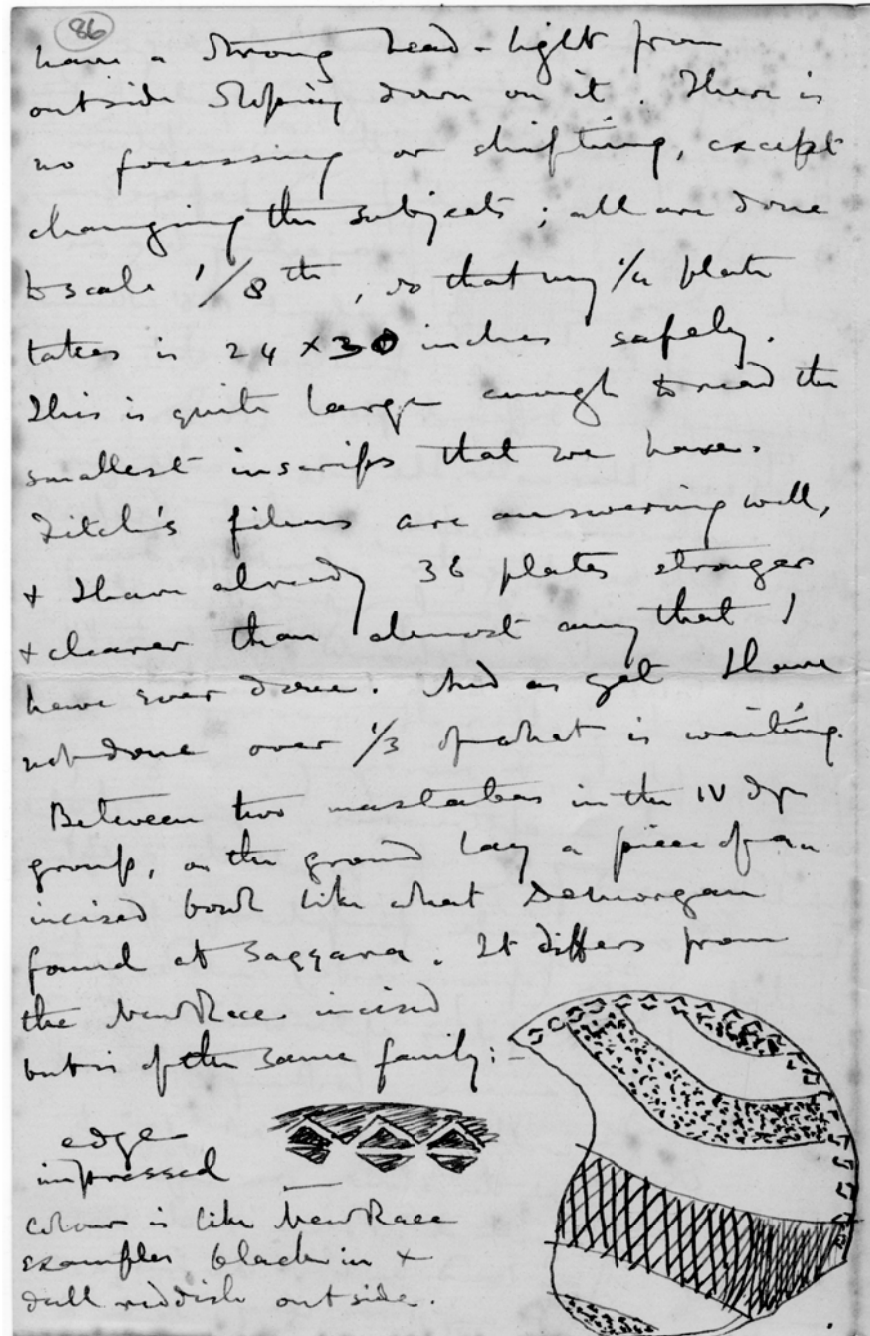 86
have a strong head-light from
outside sloping down on it. There is
no focussing or shifting, except
changing the subjects; all are done
to scale 1/8th, so that my 1/4 plate
takes in 24 x 30 inches safely.
This is quite large enough to read the
smallest inscrips that we have.
Fitch's films are answering well,
& I have already 36 plates stronger
& clearer than almost any that I
have ever done. And as yet I have
not done over 1/3 of what is waiting.
Between two mastabas in the IV dyn
group, on the ground lay a piece of an
incised bowl like what DeMorgan
found at Saqqara. It differs from
the New Race incised
but is of the same family:-
edge
impressed
colour is like New Race
examples black in &
dull reddish outside.